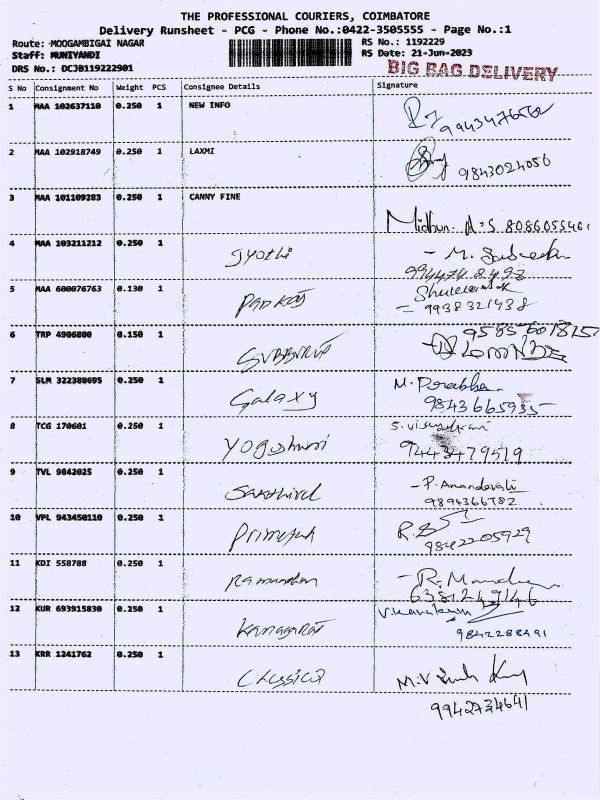 THE PROFESSIONAL COURIERS, COIMBATORE
Delivery Runsheet - PCG - Phone No.:0422-3505555 - Page No.:1
Route: MOOGAMBIGAI NAGAR RS No.: 1192229
Staff: MUNIYANDI RS Date: 21-Jun-2023
DRS No.: DCJB119222901 BIG BAG DELIVERY
S No Consignment No Weight PCS Consignee Details Signature
1 MAA 102637110 0.250 1 NEW INFO
2 MAA 102918749 0.250 1 LAXMI
9843024056
3 MAA 101109283 0.250 1 CANNY FINE
Midhun. A.S. 8086055461
4 MAA 103211212 0.250 1 Jyothi
9944748498
5 MAA 600076763 0.130 1 Pankaj
9938321438
6 TRP 4906800 0.150 1
9585601815
7 SLM 322388695 0.250 1 Galaxy M. Prabha
9843665935
8 TCG 170601 0.250 1 Yogeshwari
9443479519
9 TVL 9842025 0.250 1 Sakthivel - P. Anandavalli
9894366782
10 VPL 943450110 0.250 1
9842205929
11 KDI 558788 0.250 1
12 KUR 693915830 0.250 1 Kanagaraj
9842288491
13 KRR 1241762 0.250 1 Classical
9942734641